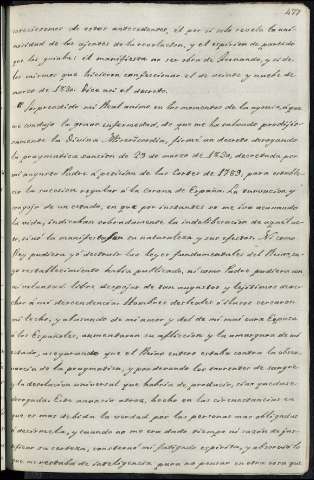 477
necesiones de estos antecedentes, él por si solo revela la uni-
nosidad de los agentes de la revolucion, y el espiritu de partido
que los guiaba: él manifiesta no ser obra de Fernando, y si de
los mismos que hicieron confeccionar el de veinte y nueve de
marzo de 1830. Dice así el decreto.
"Sorprendido mi Real animo en los momentos de la agonia, á que
me condujo la grave enfermedad, de que me ha salvado prodigio-
samente la Divina Misericordia, firmé un decreto derogando
la pragmatica sancion de 29 de marzo de 1830, decretada por
mi augusto Padre á peticion de las Cortes de 1789, para estable-
cer la sucesion regular á la Corona de España. La turbacion y
congoja de un estado, en que por instantes se me iba acabando
la vida, indicarian sobradamente la indeliberacion de aquel ac-
to, si no la manifestasen su naturaleza y sus efectos. Ni como
Rey pudiera yó destruir las leyes fundamentales del Reino, cu-
yo restablecimiento habia publicado, ni como Padre pudiera con
mi voluntad libre despojar de sus augustos y legítimos dere-
chos á mi descendencia. Hombres desleales ó ilusos cercaron
mi lecho, y abusando de mi amor y del de mi muy cara Esposa
á los Españoles, aumentaron su afliccion y la amargura de mi
estado, asegurando que el Reino entero estaba contra la obser-
vancia de la pragmatica, y ponderando los torrentes de sangre
y la desolacion universal que habria de producir, si no quedase
derogada. Este anuncio atroz, hecho en las circunstancias en
que es mas debida la verdad por las personas mas obligadas
á decírmela, y cuando no me era dado tiempo ni razon de jus-
tificar su certeza, consternó mi fatigado espíritu, y absorvió lo
que me restaba de inteligencia para no pensar en otra cosa que